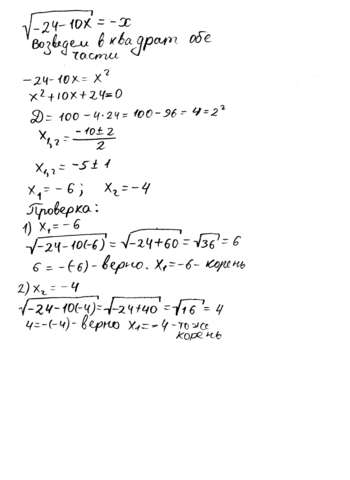 √-24-10x = -x
Возведем в квадрат обе
части
-24-10x = x²
x²+10x+24=0
D = 100-4·24 = 100-96 = 4 = 2²
x₁,₂ = -10±2/2
x₁,₂ = -5±1
x₁ = -6; x₂ = -4
Проверка:
1) x₁ = -6
√-24-10(-6) = √-24+60 = √36 = 6
6 = -(-6) - верно. x₁ = -6 - корень
2) x₂ = -4
√-24-10(-4) = √-24+40 = √16 = 4
4 = -(-4) - верно x₁ = -4 - тоже
корень